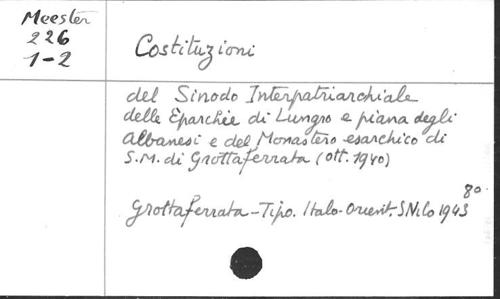 Meester
226
1-2
Costituzioni
del Sinodo Interpatriarchiale
delle Eparchie di Lungro e piana degli
Albanesi e del Monastero esarchico di
S.M. di Grottaferrata (ott. 1940)
8°
Grottaferrata - Tipo. Italo-Orient. S Nilo 1943